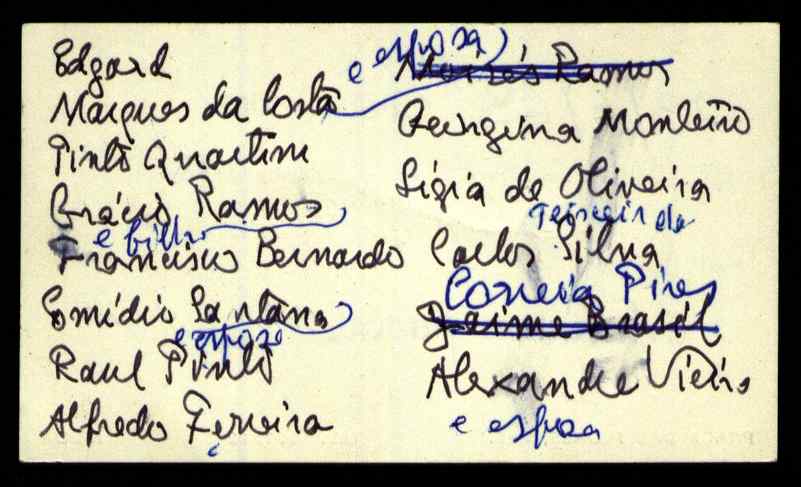 Edgard
Marques da Costa e esposa
Pinto Quartim
Grácio Ramos
e filho
Francisco Bernardo
Emídio Santana
e espoza
Raul Pinto
Alfredo Ferreira
Moisés Ramos
Georgina Monteiro
Ligia de Oliveira
Teixeira da
Carlos Silva
Correia Pires
Jaime Brasil
Alexandre Vieira
e espoza